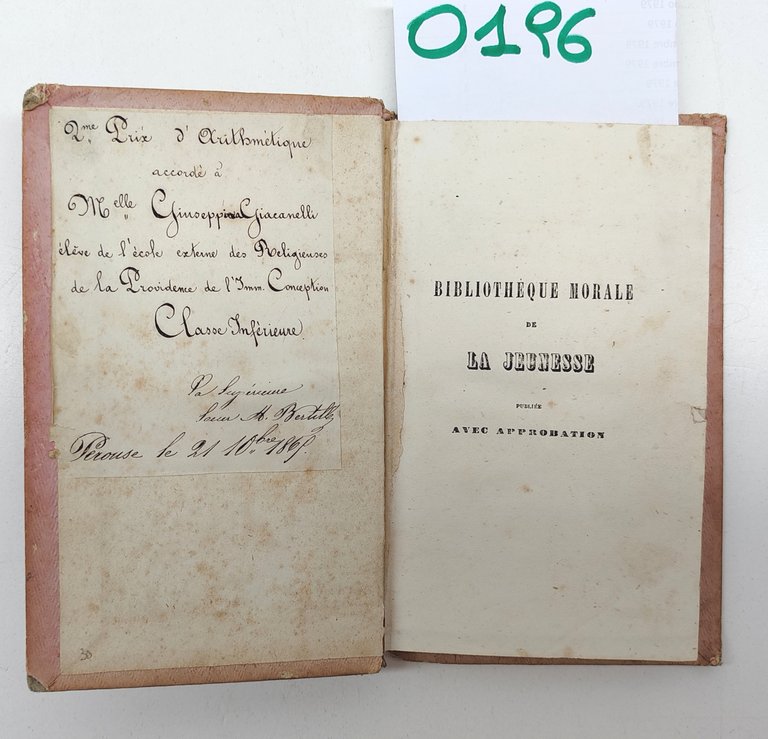 O196
2.me Prix d'Arithmétique
accordé à
Melle Giuseppina Giacanelli
élève de l'école externe des Religieuses
de la Providence de l'Imm. Conception
Classe Inférieure
La Supérieure
Soeur M.
Pérouse le 21 10.bre
30
BIBLIOTHÈQUE MORALE
DE
LA JEUNESSE
PUBLIÉE
AVEC APPROBATION